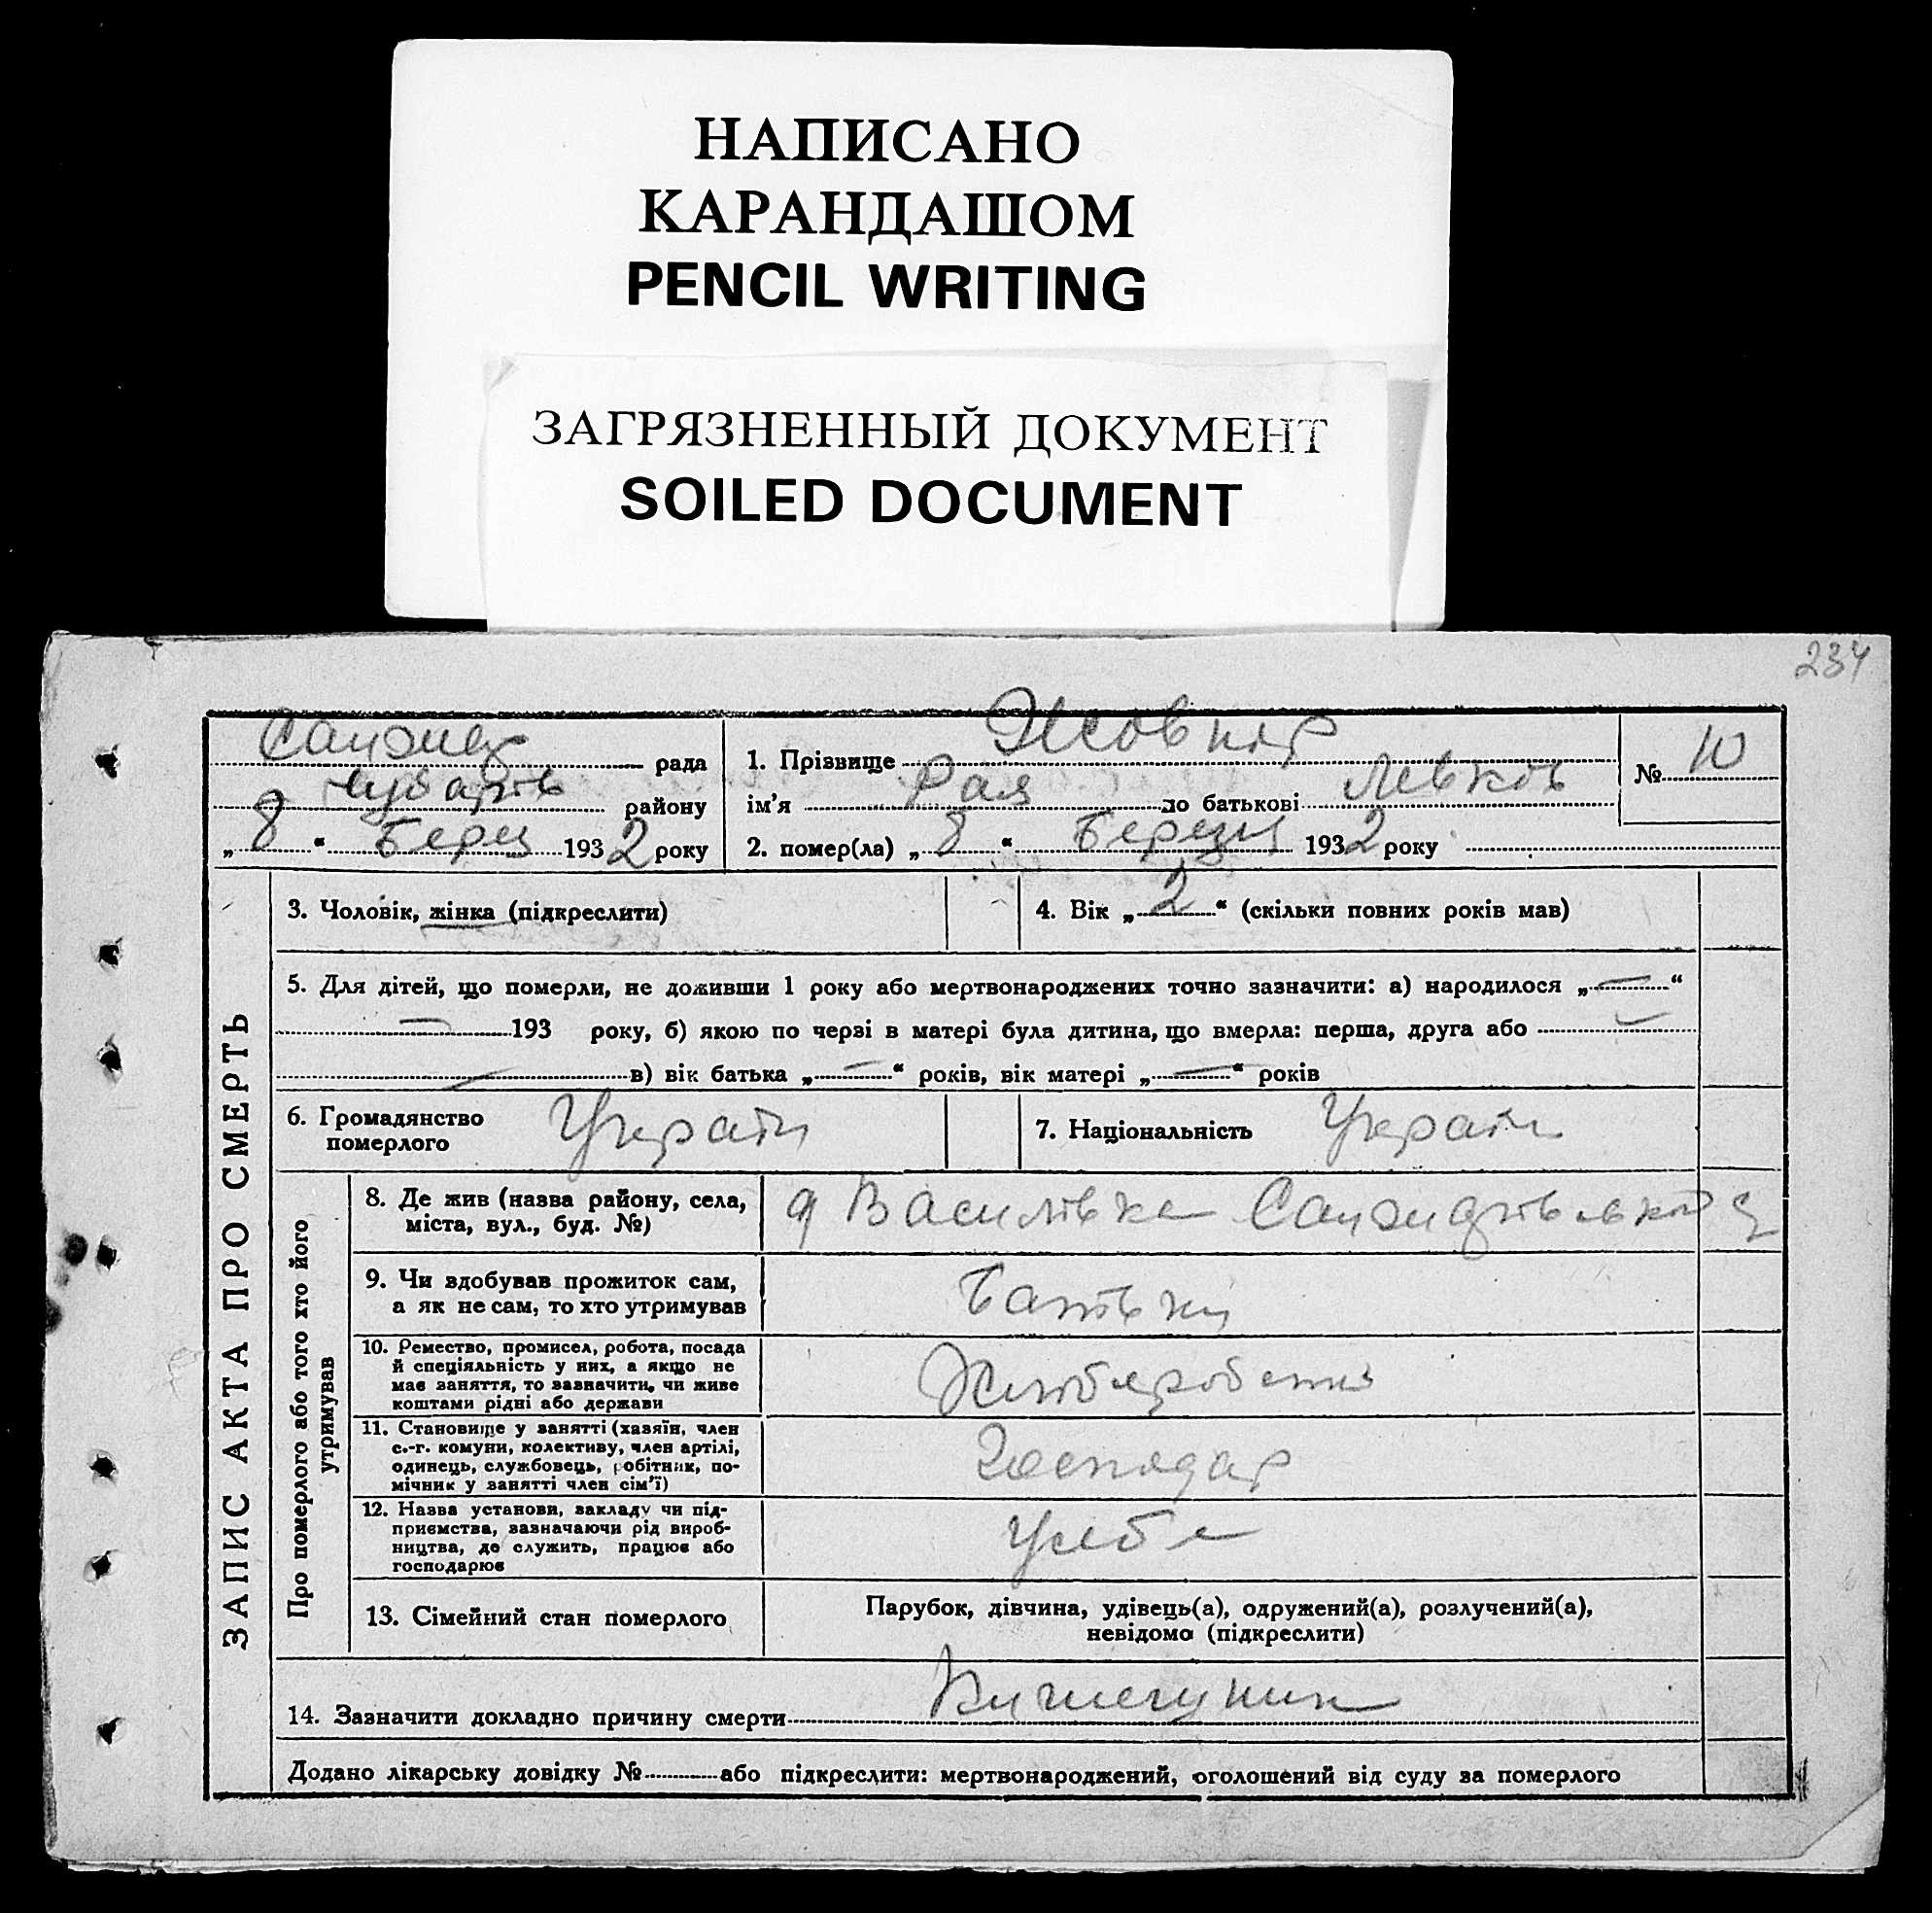 НАПИСАНО
КАРАНДАШОМ
PENCIL WRITING
ЗАГРЯЗНЕННЫЙ ДОКУМЕНТ
SOILED DOCUMENT
234
ЗАПИС АКТА ПРО СМЕРТЬ
рада
району
„ 8 “ Берез 1932 року
1. Прізвище Жовнір
ім'я Рая по батькові Левков
№ 10
2. помер(ла) „ 8 “ Березня 1932 року
3. Чоловік, жінка (підкреслити)
4. Вік „ 2 “ (скільки повних років мав)
5. Для дітей, що померли, не доживши 1 року або мертвонароджених точно зазначити: а) народилося „ — “
— 193 року, б) якою по черзі в матері була дитина, що вмерла: перша, друга або —
— в) вік батька „ — “ років, вік матері „ — “ років
6. Громадянство
померлого
Україн
7. Національність Україн
Про померлого або того хто його
утримував
8. Де жив (назва району, села,
міста, вул., буд. №)
Василівка
9. Чи здобував прожиток сам,
а як не сам, то хто утримував
Батьки
10. Ремество, промисел, робота, посада
й спеціяльність у них, а якщо не
має заняття, то зазначити, чи живе
коштами рідні або держави
11. Становище у занятті (хазяїн, член
с.-г. комуни, колективу, член артілі,
одинець, службовець, робітник, по-
мічник у занятті член сім'ї)
Господар
12. Назва установи, закладу чи під-
приємства, зазначаючи рід вироб-
ництва, де служить, працює або
господарює
У себе
13. Сімейний стан померлого
Парубок, дівчина, удівець(а), одружений(а), розлучений(а),
невідомо (підкреслити)
14. Зазначити докладно причину смерти
Додано лікарську довідку № або підкреслити: мертвонароджений, оголошений від суду за померлого